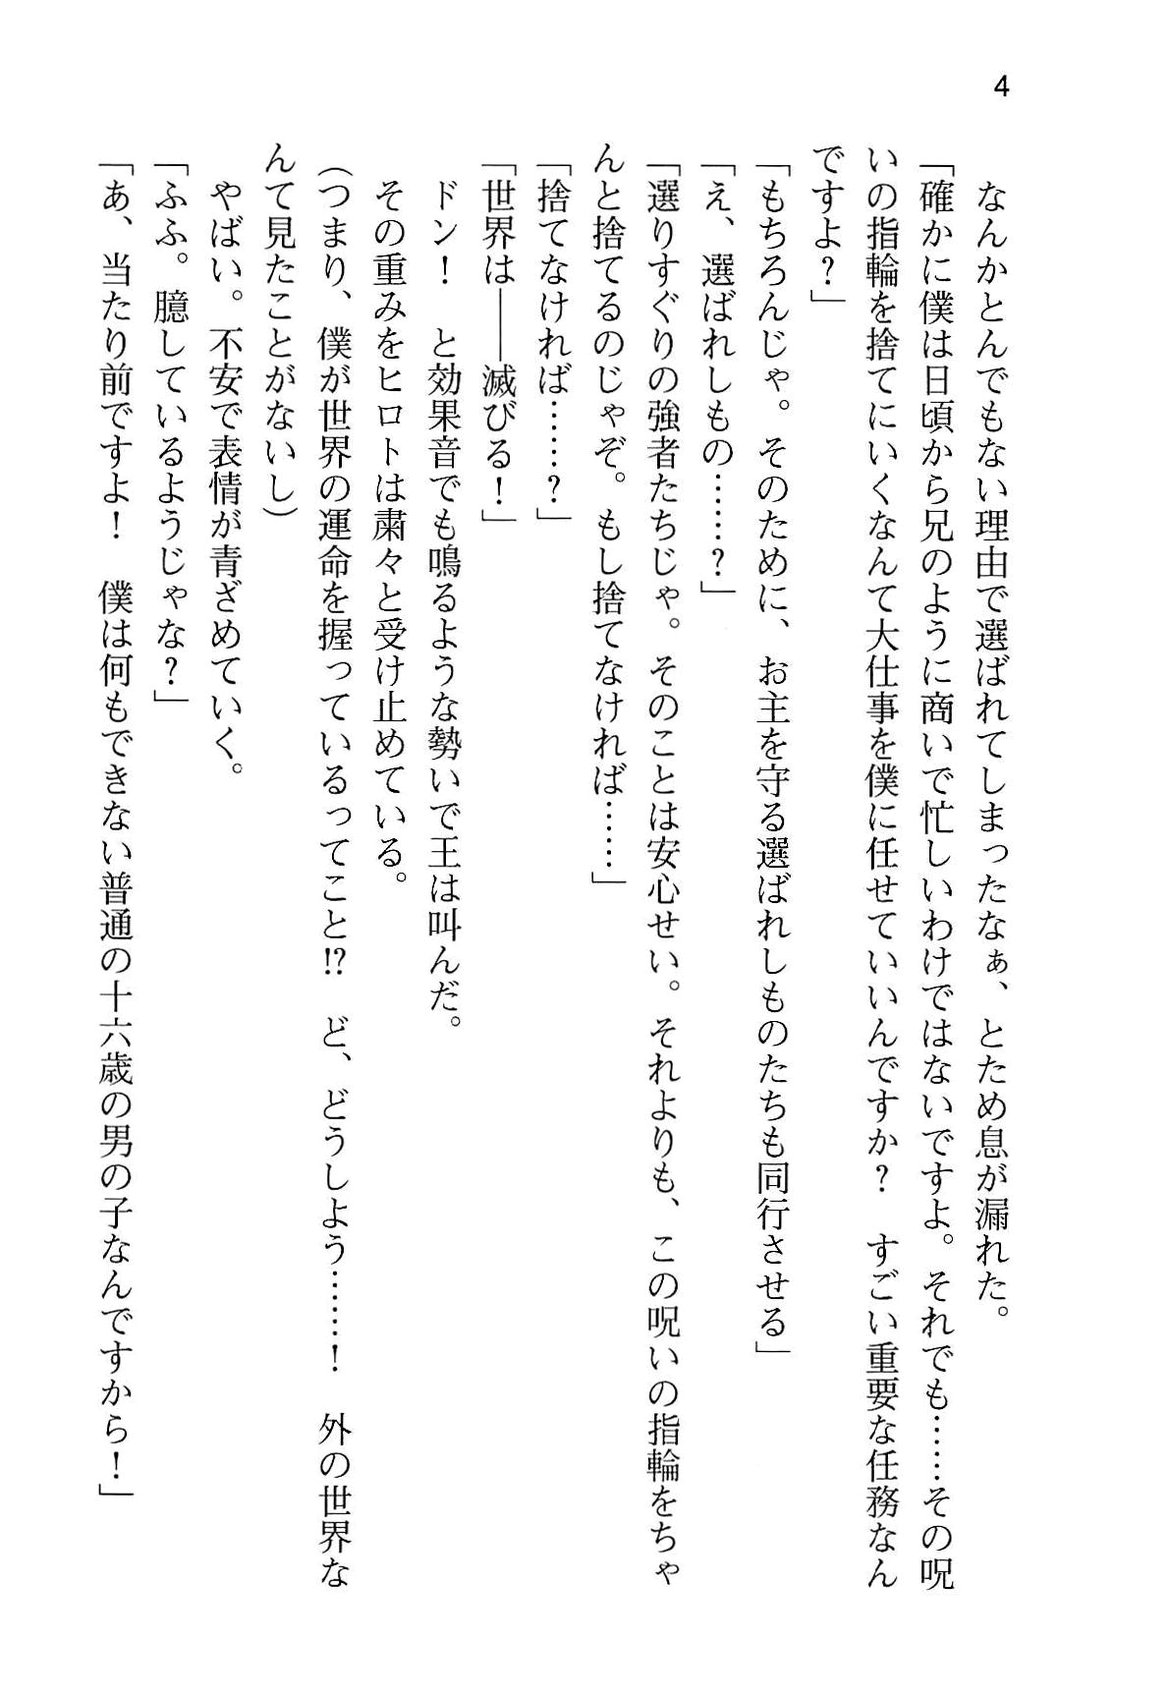 4
　なんかとんでもない理由で選ばれてしまったなぁ、とため息が漏れた。
「確かに僕は日頃から兄のように商いで忙しいわけではないですよ。それでも……その呪
いの指輪を捨てにいくなんて大仕事を僕に任せていいんですか？　すごい重要な任務なん
ですよ？」
「もちろんじゃ。そのために、お主を守る選ばれしものたちも同行させる」
「え、選ばれしもの……？」
「選りすぐりの強者たちじゃ。そのことは安心せい。それよりも、この呪いの指輪をちゃ
んと捨てるのじゃぞ。もし捨てなければ……」
「捨てなければ……？」
「世界は――滅びる！」
　ドン！　と効果音でも鳴るような勢いで王は叫んだ。
　その重みをヒロトは粛々と受け止めている。
（つまり、僕が世界の運命を握っているってこと!?　ど、どうしよう……！　外の世界な
んて見たことがないし）
　やばい。不安で表情が青ざめていく。
「ふふ。臆しているようじゃな？」
「あ、当たり前ですよ！　僕は何もできない普通の十六歳の男の子なんですから！」